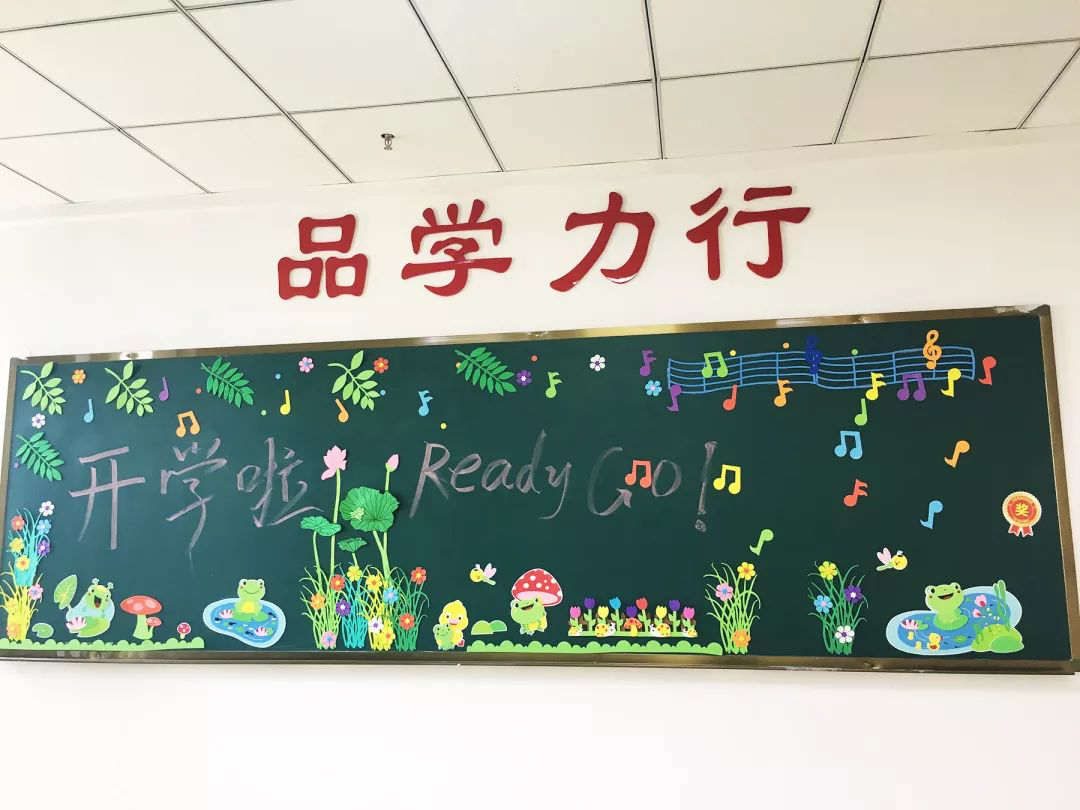 品学力行
开学啦 Ready Go!
奖